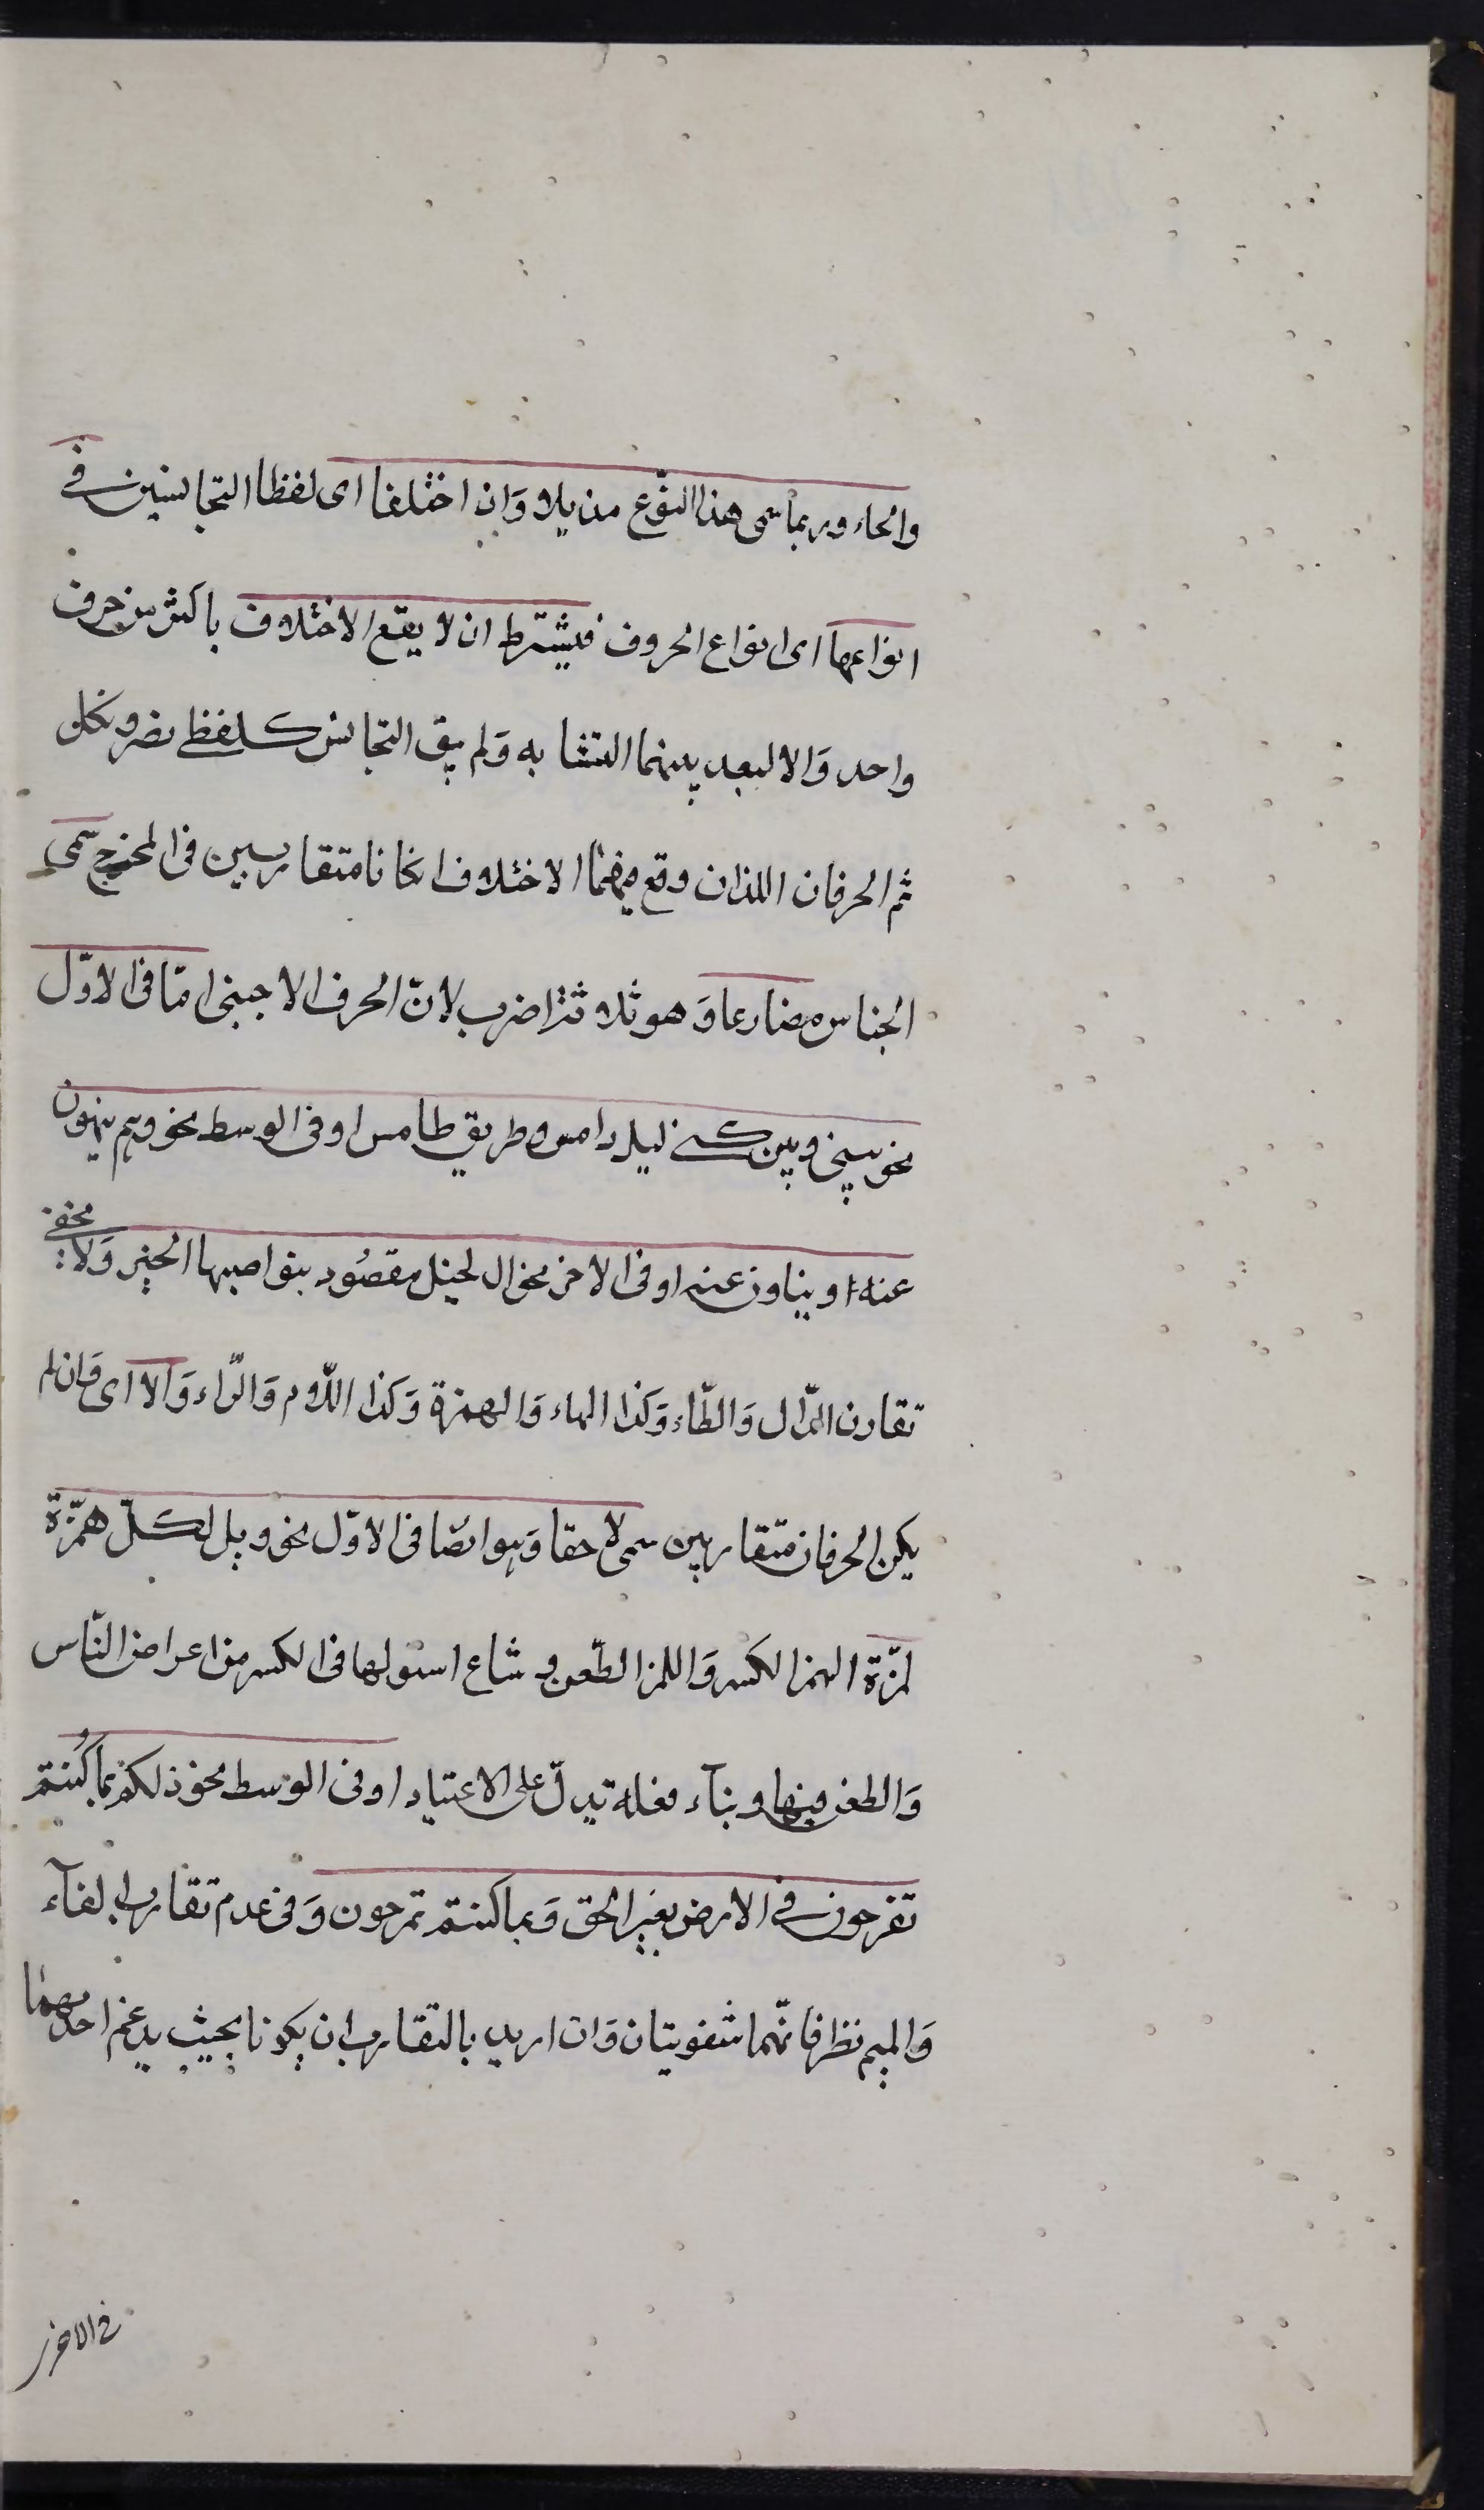 والحاء وربما سمى هذا النّوع مذيلا وَان اختلفا اى لفظا المتجانسين فى
انواعها اى انواع الحروف فيشترط ان لا يقع الاختلاف باكثر من حرف
واحد وَالا لبعد بينهما التشابه وَلم يبق التجانس كلفظى نصر ونكل
ثم الحرفان اللذان وقع فيهما الاختلاف انكانا متقاربين فى المخرج سمى
الجناس مضارعا وَهو ثلاثة اضرب لانّ الحرف الاجنبى امّا فى الاوّل
نحو بينى وبين كنى ليل دامس وطريق طامس او فى الوسط نحو وهم ينهون
عنه او يناون عنه او فى الاخر نحو الخيل مقصُود بنواصيها الخير وَلا يخفى
تقارن الدّال وَالطّاء وَكذا الهاء وَالهمزة وَكذا اللّام وَالرّاء وَالا اى وَان لم
يكن الحرفان متقاربين سمى لاحقا وَهو ايضا فى الاوّل نحو ويل لكلّ همزة
لمزة الهمز الكسر وَاللمز الطّعن و شاع استولها فى الكسر من اعراض النّاس
وَالطعن فيها وبنآء فعلة تدلّ على الاعتياد او فى الوسط نحو ذلكم بما كُنتم
تفرحون فى الارض بغير الحق وَبما كنتم تمرحون وَفى عدم تقارب الفآء
وَالميم نظر فانّهما شفويتان وَان اريد بالتقارب ان يكونا بحيث يدغم احديهما
فى الاخر